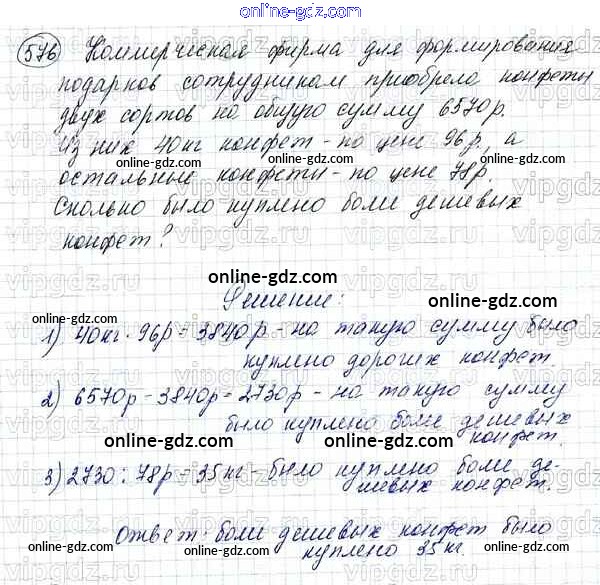 online-gdz.com
576 Коммерческая фирма для формирования
подарков сотрудникам приобрела конфеты
двух сортов на общую сумму 6570р.
Из них 40кг конфет - по цене 96р, а
online-gdz.com online-gdz.com
остальные конфеты - по цене 78р.
Сколько было куплено боле дешевых
конфет?
online-gdz.com
Решение:
1) 40кг · 96р = 3840р - на такую сумму было
куплено дорогих конфет.
online-gdz.com online-gdz.com
2) 6570р - 3840р = 2730р - на такую сумму
было куплено боле дешевых
конфет.
online-gdz.com
3) 2730 : 78р = 35кг - было куплено боле де-
шевых конфет.
online-gdz.com online-gdz.com
Ответ: боле дешевых конфет было
куплено 35кг.
online-gdz.com online-gdz.com